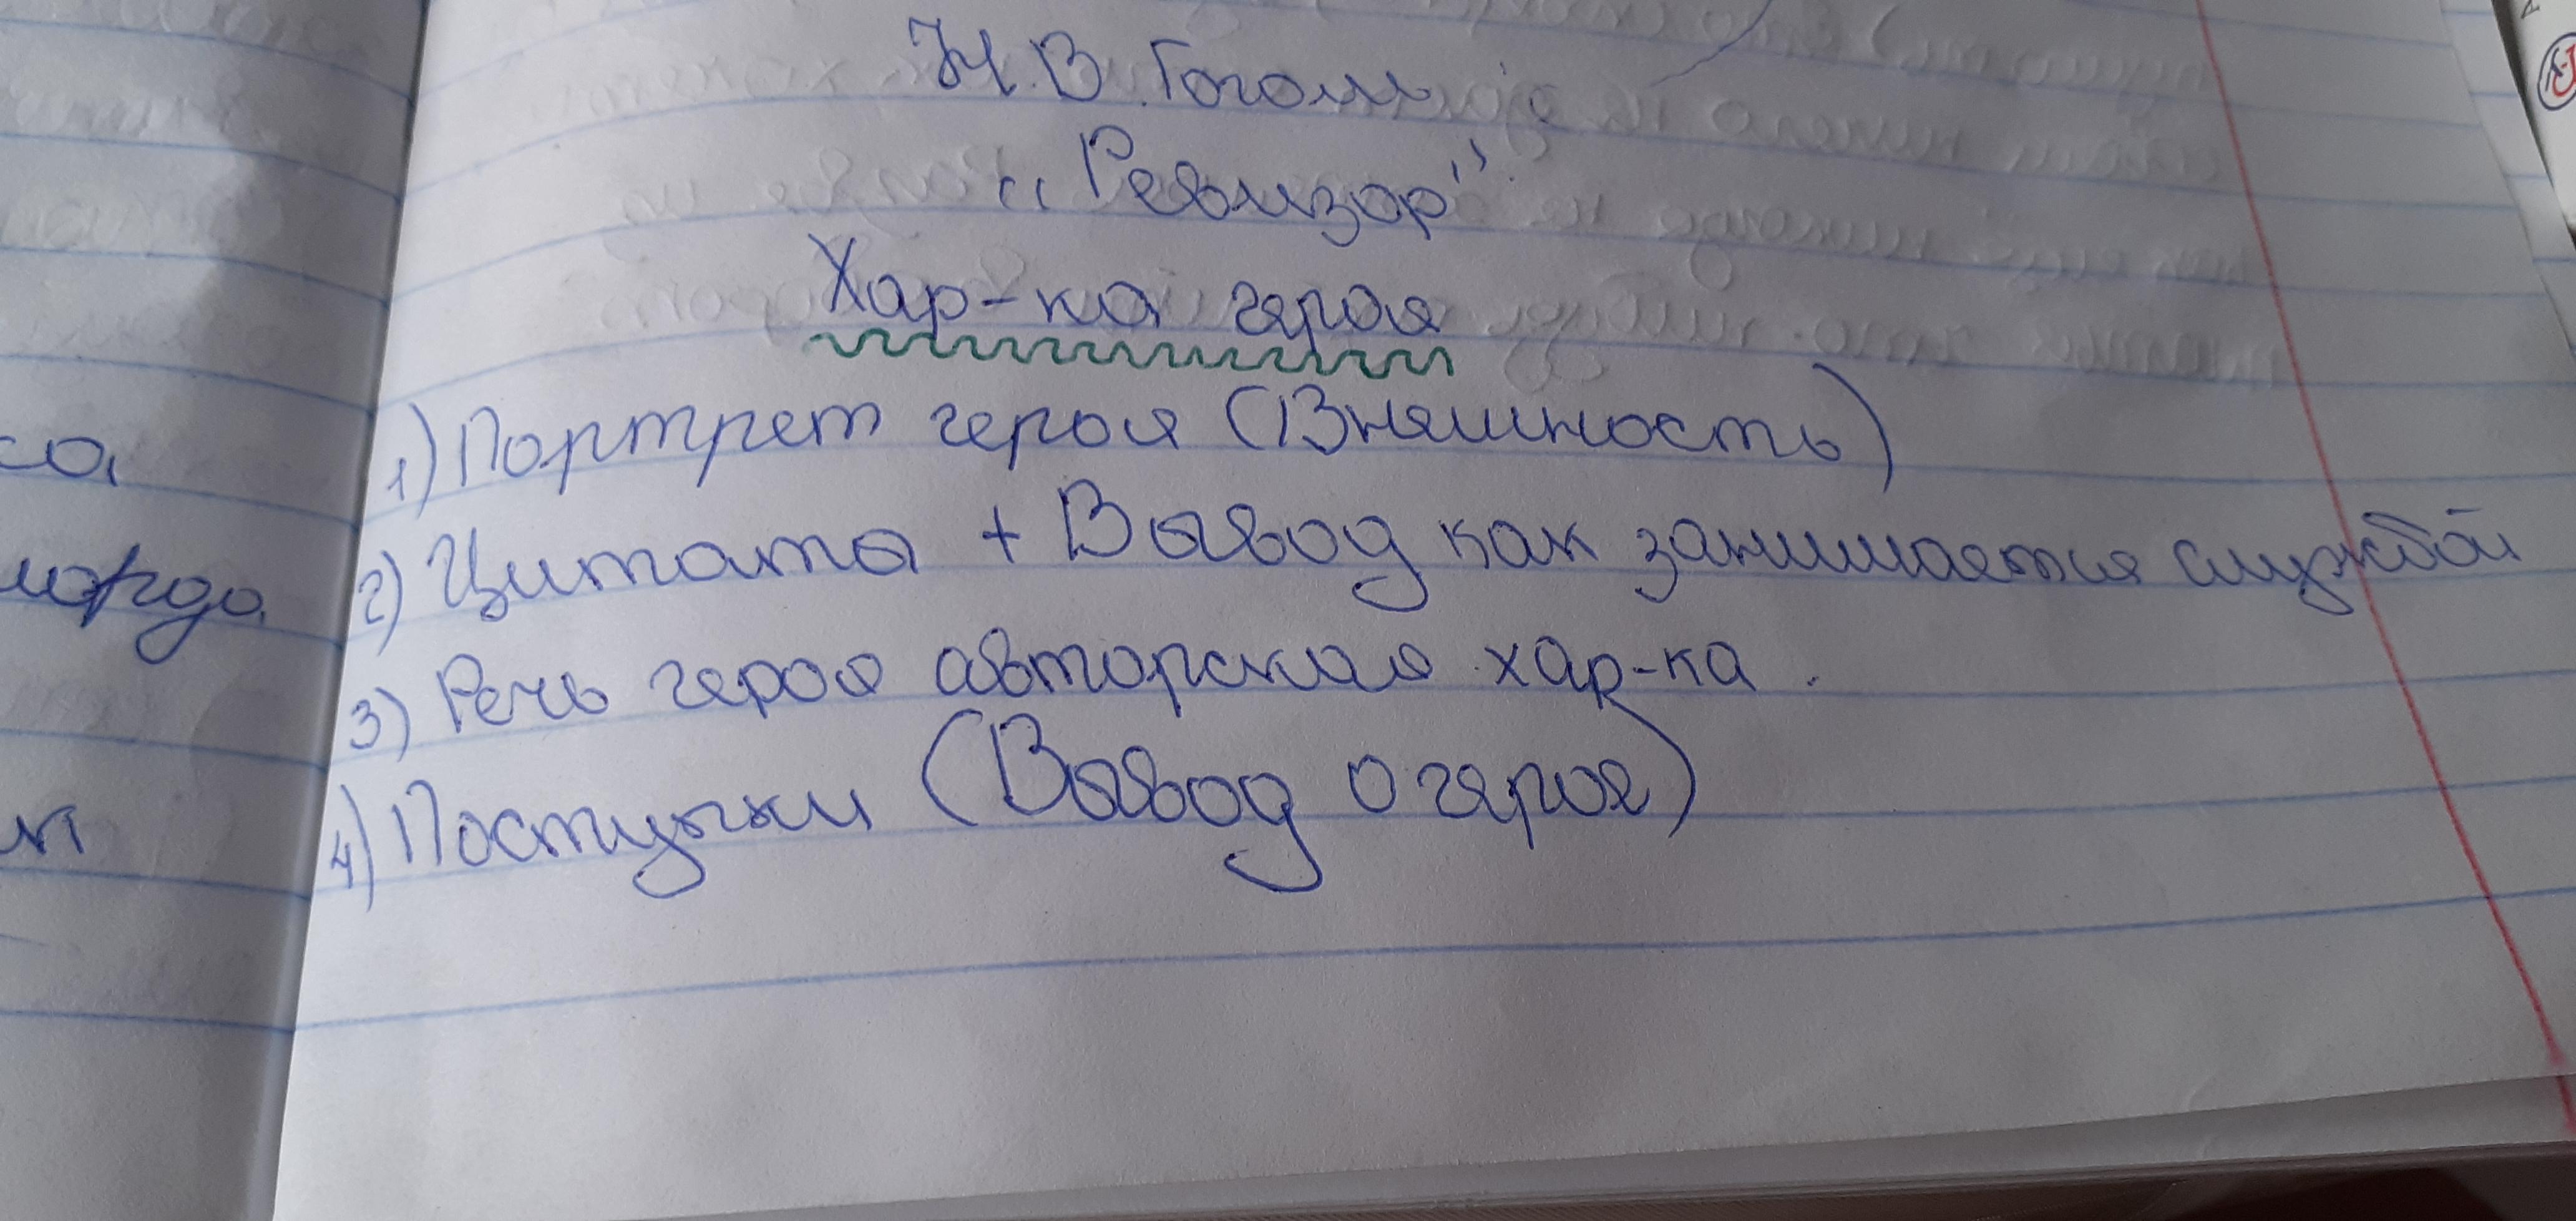 Н.В. Гоголь
"Ревизор"
Хар-ка героя
1) Портрет героя (Вняшность)
2) Цитаты + Вывод как занимается службой
3) Речь героя авторская хар-ка.
4) Поступки (Вывод о герое)